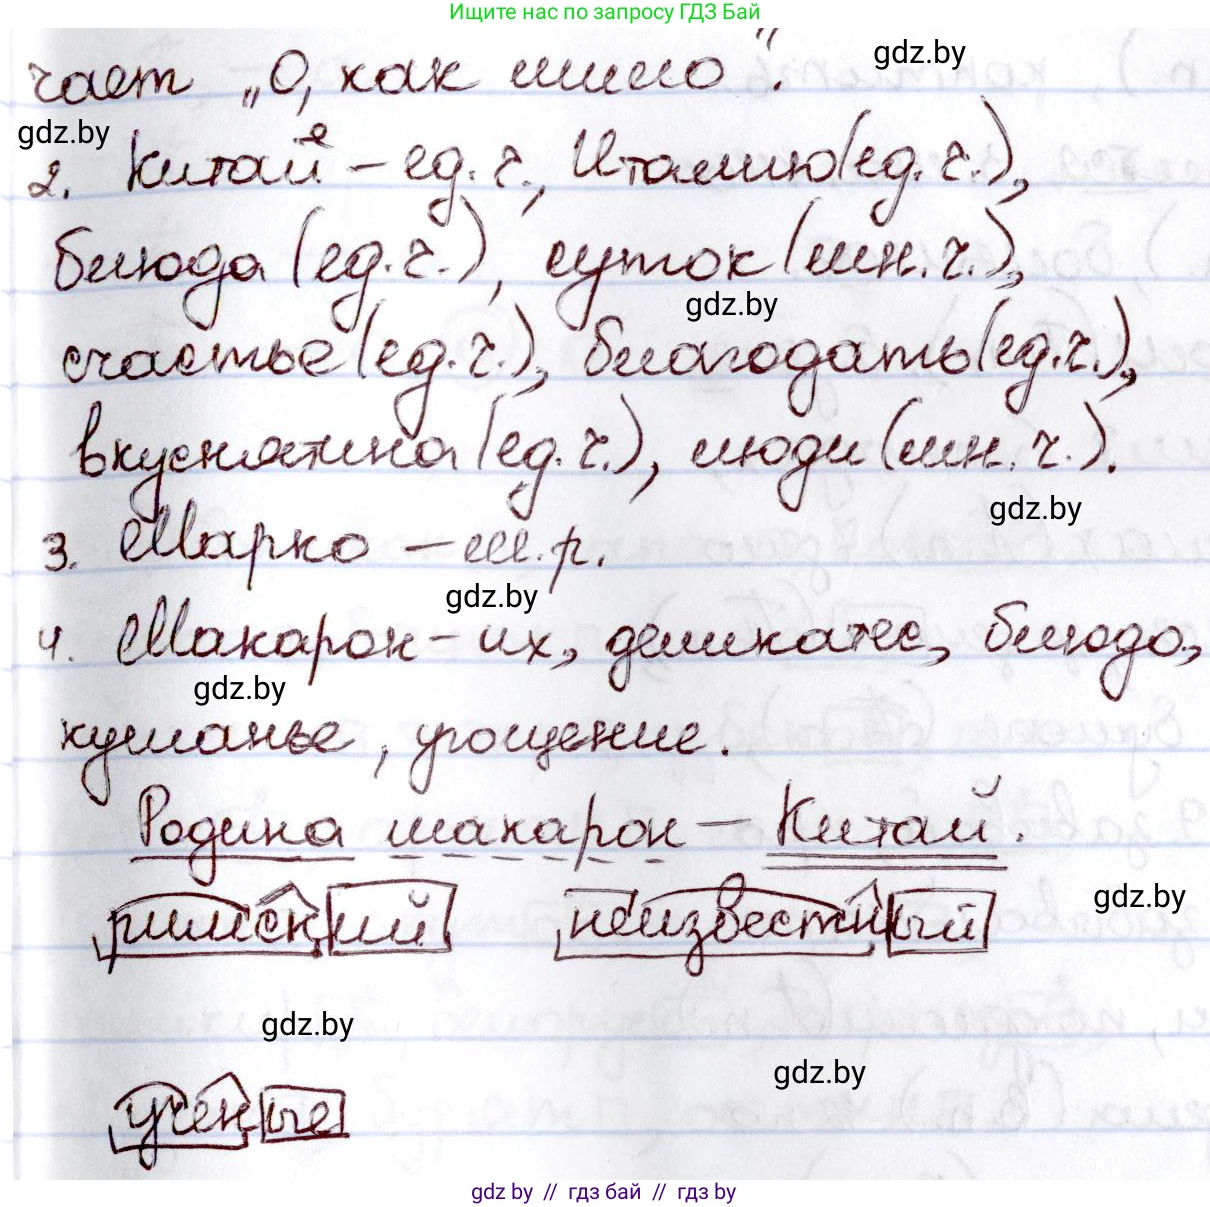 Ищите нас по запросу ГДЗ Бай
чает „О, как мило".
gdz.by
gdz.by
2. Китай – ед. ч., Италию (ед. ч.),
блюда (ед. ч.), суток (мн. ч.),
gdz.by
счастье (ед. ч.), благодать (ед. ч.),
вкуснятина (ед. ч.), люди (мн. ч.).
gdz.by
3. Марко – м. р.
gdz.by
4. Макарон – их, деликатес, блюдо,
gdz.by
кушанье, угощение.
Родина макарон – Китай.
gdz.by
римский неизвестный
gdz.by
gdz.by
учёные
gdz.by // гдз бай // гдз by